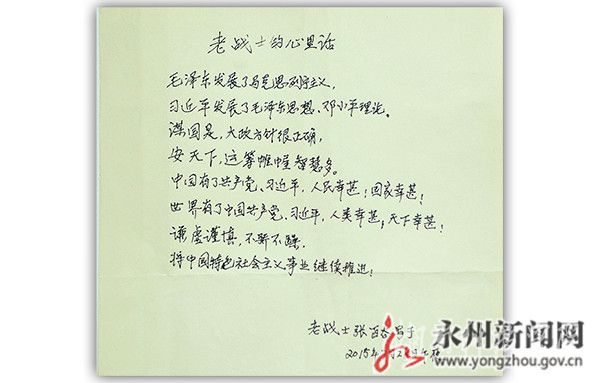 老战士的心里话
毛泽东发展了马克思列宁主义,
习近平发展了毛泽东思想、邓小平理论。
谋国是,大政方针很正确,
安天下,运筹帷幄智慧多。
中国有了共产党、习近平,人民幸甚!国家幸甚!
世界有了中国共产党、习近平,人类幸甚,天下幸甚!
谦虚谨慎,不骄不躁,
将中国特色社会主义事业继续推进!
老战士张百春写于
2015年
永州新闻网
www.yongzhou.gov.cn